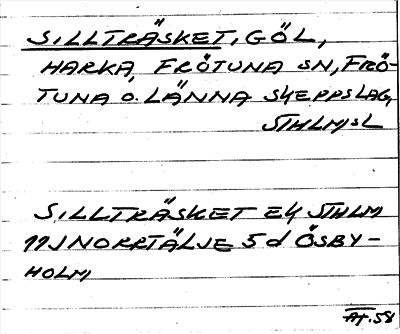 SILLTRÄSKET, GÖL,
HARKA, FRÖTUNA SN, FRÖ-
TUNA O. LÄNNA SKEPPSLAG,
STHLMS L
SILLTRÄSKET EK STHLM
11J NORRTÄLJE 5 d ÖSBY-
HOLM